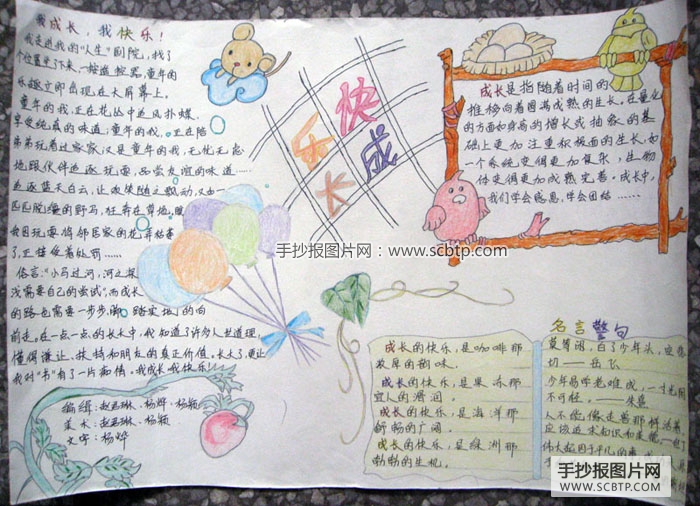 我成长，我快乐！
我走进我的“人生”剧院，找了
个位置坐了下来，一按遥控器，童年的
乐趣立即出现在大屏幕上。
童年的我，正在花丛中迎风扑蝶，
享受纯真的味道；童年的我，正在陪
弟弟玩着过家家；又是童年的我，无忧无虑
地跟伙伴追逐玩耍，品尝友谊的味道……
追逐蓝天白云，让欢笑随之飘动，又如一
匹脱缰的野马，狂奔在草地，
因玩耍将邻居家的花弄枯萎
了，正接受着处罚……
俗言：“小马过河，河之深
浅需要自己的尝试”，而成长
的路也需要一步步，脚踏实地的向
前走。在一点一点的长大中，我知道了许多人世道理，
懂得谦让、扶持和朋友的真正价值。长大了，更让
我对“书”有了一片痴情。我成长我快乐！
编缉：赵思琳、杨烨、杨颖
美术：赵思琳、杨颖
文字：杨烨
快
乐 成
长
成长是指随着时间的
推移向着圆满成熟的生长，在量化
的方面如身高的增长或抽象的基
础上更加注重积极面的生长，如
一个系统变得更加复杂，生物
体变得更加成熟完善。成长中，
我们学会感恩，学会团结……
手抄报图片网：www.scbtp.com
成长的快乐，是咖啡那
浓厚的韵味。
成长的快乐，是果冻那
宜人的滑润。
成长的快乐，是海洋那
舒畅的广阔。
成长的快乐，是绿洲那
勃勃的生机。
名言警句
莫等闲，白了少年头，空悲
切 —— 岳飞
少年易学老难成，一寸光阴
不可轻。—— 朱熹
人不能像走兽那样活着，
应该追求知识和美德
伟大起因于平凡的事
手抄报图片网
WWW.SCBTP.COM